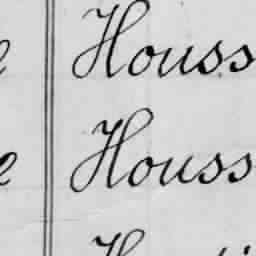 e Houss
e Houss